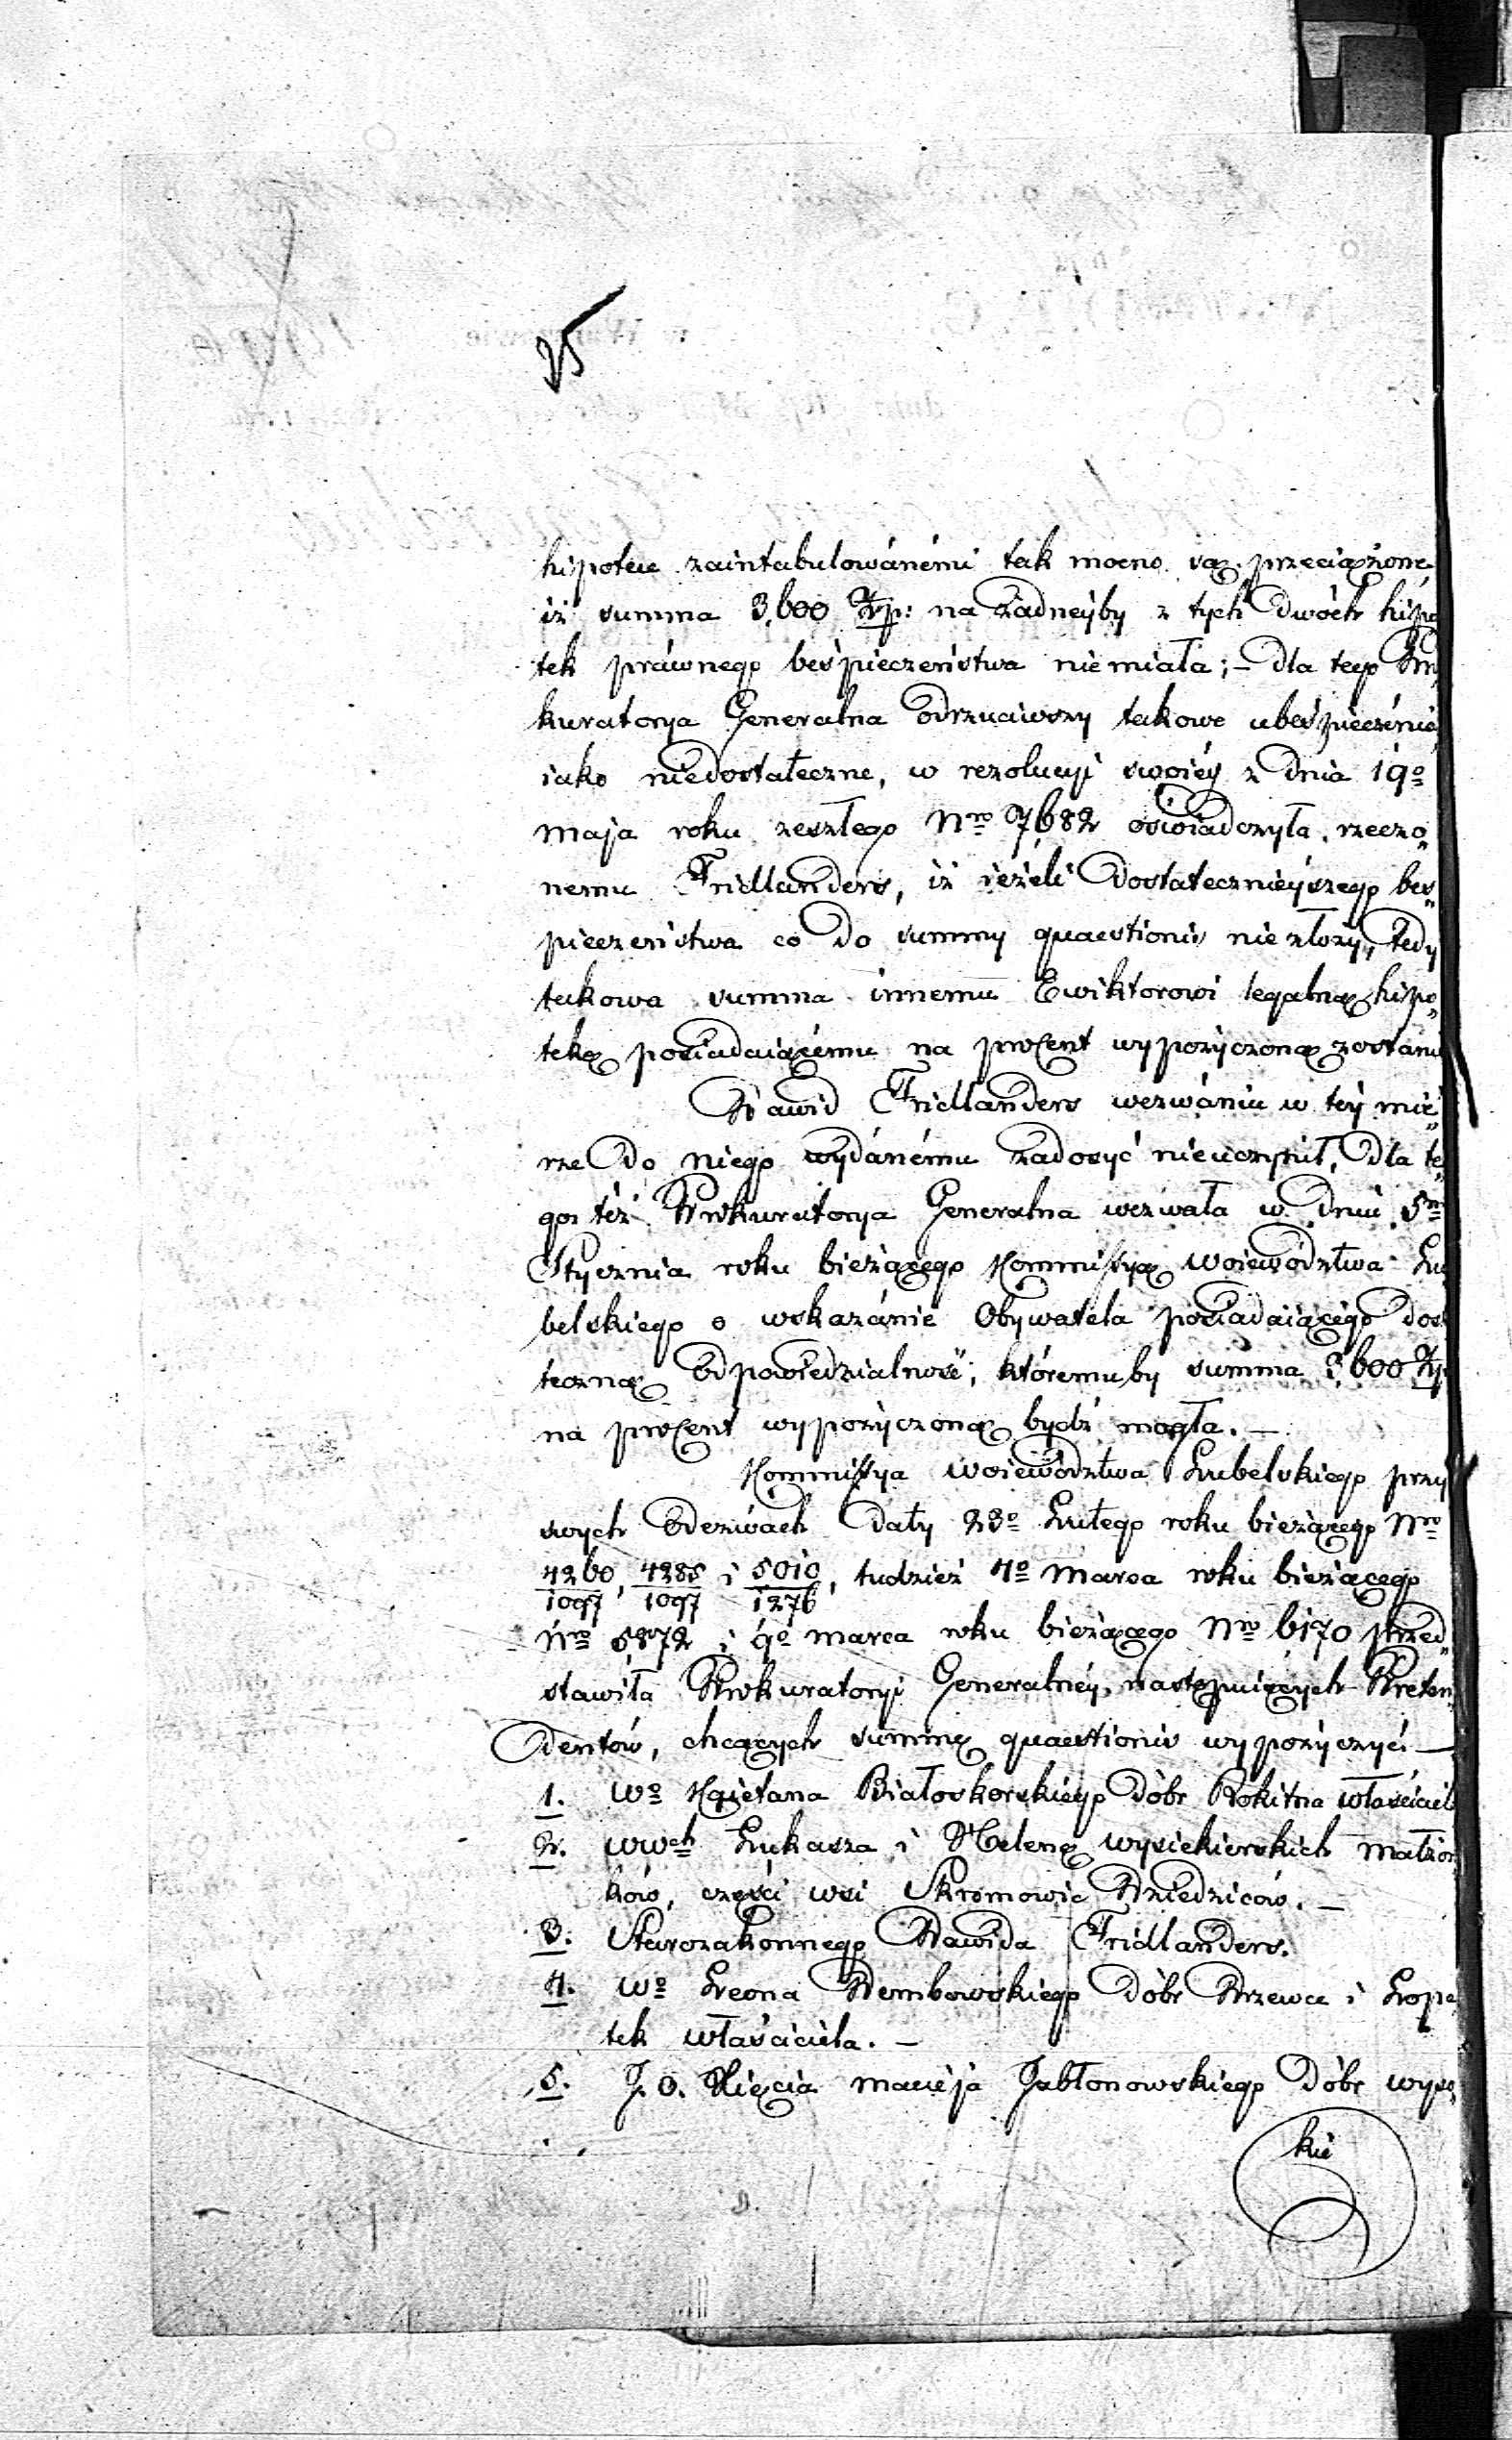 25
hipotece zaintabulowánémi tak mocno są przeciążone
iż summa 3,600 Złp: na żadneyby z tych dwóch hipo
tek práwnego bespieczeństwa niemiała; – dla tego Pro
kuratorya Generalna odrzuciwszy takowe ubespieczénie
iako niedostateczne, w rezolucyi swoiéy z dnia 19º
maja roku zeszłego Nrº 7682 oświadczyła rzeczo„
nemu Fridlanders, iż ieżeli dostatecznieyszego bes„
pieczeństwa co do summy quaestionis niezłoży, tedy
takowa summa innemu Ewiktorowi legalną hipo„
tekę posiadaiącému na procent wypożyczoną zostanie
Dawid Fridlanders wezwániu w téy mie„
rze do niego wydánému zadosyć nieuczynił, dla te„
go też Prokuratorya Generalna wezwała w dniu 5m
Stycznia roku bieżącego Kommissyą Woiewództwa Lu
belskiego o wskazánie Obywatela posiadaiącego dosta
teczną odpowiedzialność, któremuby summa 3,600 Złp
na procent wypożyczoną bydź mogła. –
Kommissya Woiewództwa Lubelskiego przy
swych odezwach daty 23º Lutego roku bieżącego Nrº
4260/1097, 4285/1097 i 5010/1276, tudzież 4º Marca roku bieżącego
Nrº 5872 i 9º marca roku bieżącego Nrº 6170 przed„
stawiła Prokuratoryi Generalnéy, następuiących Preten
dentów, chcących summę quaestionis wypożyczyć. –
1. Wº Kaietana Białoskorskiego dóbr Rokitna właściciela
2. WWch Łukasza i Helenę Wysiekierskich Małżon
ków, części wsi Skromowic Dziedziców. –
3. Starozakonnego Dawida Fridlanders.
4. Wº Leona Dembowskiego dóbr Drzewce i Łopa
tek właściciela. –
5. J. O. Xięcia Macieja Jabłonowskiego dóbr Wyso„
kie